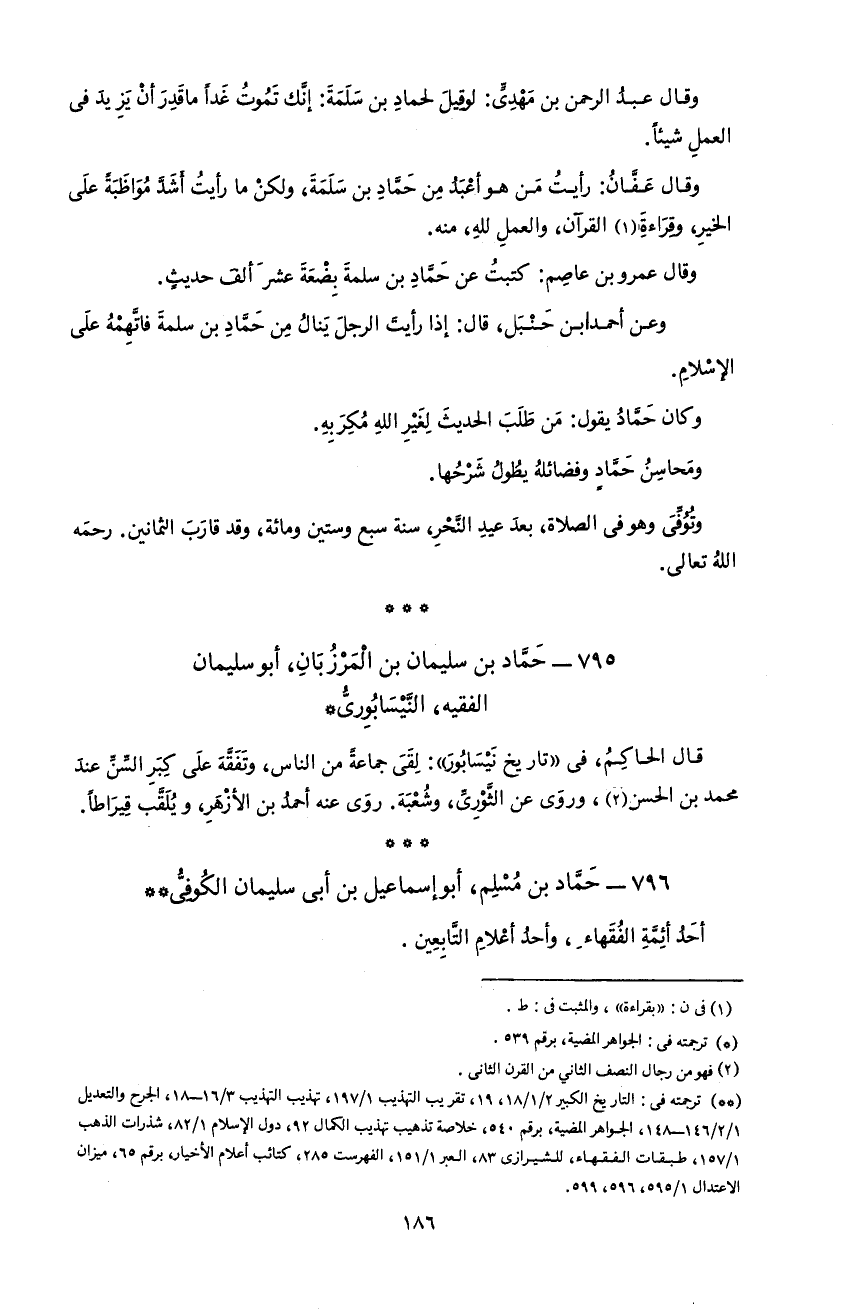 وقال عبدُ الرحمن بن مَهْدِىٍّ: لوقيلَ لحمادِ بن سَلَمَةَ: إنَّك تَمُوتُ غَداً ماقَدِرَ أنْ يَزِيدَ فى
العملِ شيئاً.
وقال عَفَّانُ: رأيتُ مَن هو أعْبَدُ مِن حَمَّاد بن سَلَمَةَ، ولكنْ ما رأيتُ أَشَدَّ مُوَاظَبَةً علَى
الخيرِ، وقِرَاءةِ(١) القرآن، والعملِ للهِ، منه.
وقال عمرو بن عاصِم: كتبتُ عن حَمَّادِ بن سلمةَ بِضْعَةَ عشرَ ألفَ حديثٍ.
وعن أحمدابن حَنْبَل، قال: إذا رأيتَ الرجلَ يَنالُ مِن حَمَّادِ بن سلمةَ فاتَّهِمْهُ علَى
الإسْلامِ.
وكان حَمَّادُ يقول: مَن طَلَبَ الحديثَ لِغَيْرِ اللهِ مُكِرَ بِهِ.
ومَحاسِنُ حَمَّادٍ وفضائلهُ يطُولُ شَرْحُها.
وتُوُفِّىَ وهو فى الصلاة، بعدَ عيدِ النَّحْرِ، سنة سبع وستين ومائة، وقد قارَبَ الثمانين. رحمَه
اللهُ تعالى.
* * *
٧٩٥ – حَمَّاد بن سليمان بن الْمَرْزُبَانِ، أبو سليمان
الفقيه، النَّيْسَابُورِىُّ*
قال الحاكِمُ، فى «تاريخ نَيْسَابُورَ»: لِقَىَ جماعةً من الناس، وتَفَقَّهَ علَى كِبَرِ السِّنِّ عندَ
محمد بن الحسن(٢) ، وروَى عن الثَّوْرِىِّ، وشُعْبَةَ. روَى عنه أحمدُ بن الأزْهَرِ، ويُلَقَّب قِيرَاطاً.
* * *
٧٩٦ – حَمَّاد بن مُسْلِم، أبو إسماعيل بن أبى سليمان الكُوفِىُّ**
أحَدُ أئِمَّةِ الفُقَهاءِ ، وأحدُ أعْلامِ التَّابِعِين .
(١) فى ن : «بقراءة» ، والمثبت فى : ط .
(*) ترجمته فى : الجواهر المضية، برقم ٥٣٩ .
(٢) فهو من رجال النصف الثاني من القرن الثانى .
(**) ترجمته فى : التاريخ الكبير ١٨/١/٢، ١٩، تقريب التهذيب ١٩٧/١، تهذيب التهذيب ١٦/٣–١٨، الجرح والتعديل
١٤٦/٢/١–١٤٨، الجواهر المضية، برقم ٥٤٠، خلاصة تذهيب تهذيب الكمال ٩٢، دول الإسلام ٨٢/١، شذرات الذهب
١٥٧/١، طبقات الفقهاء، للشيرازى ٨٣، العبر ١٥١/١، الفهرست ٢٨٥، كتائب أعلام الأخيار، برقم ٦٥، ميزان
الاعتدال ٥٩٥/١، ٥٩٦، ٥٩٩.
١٨٦